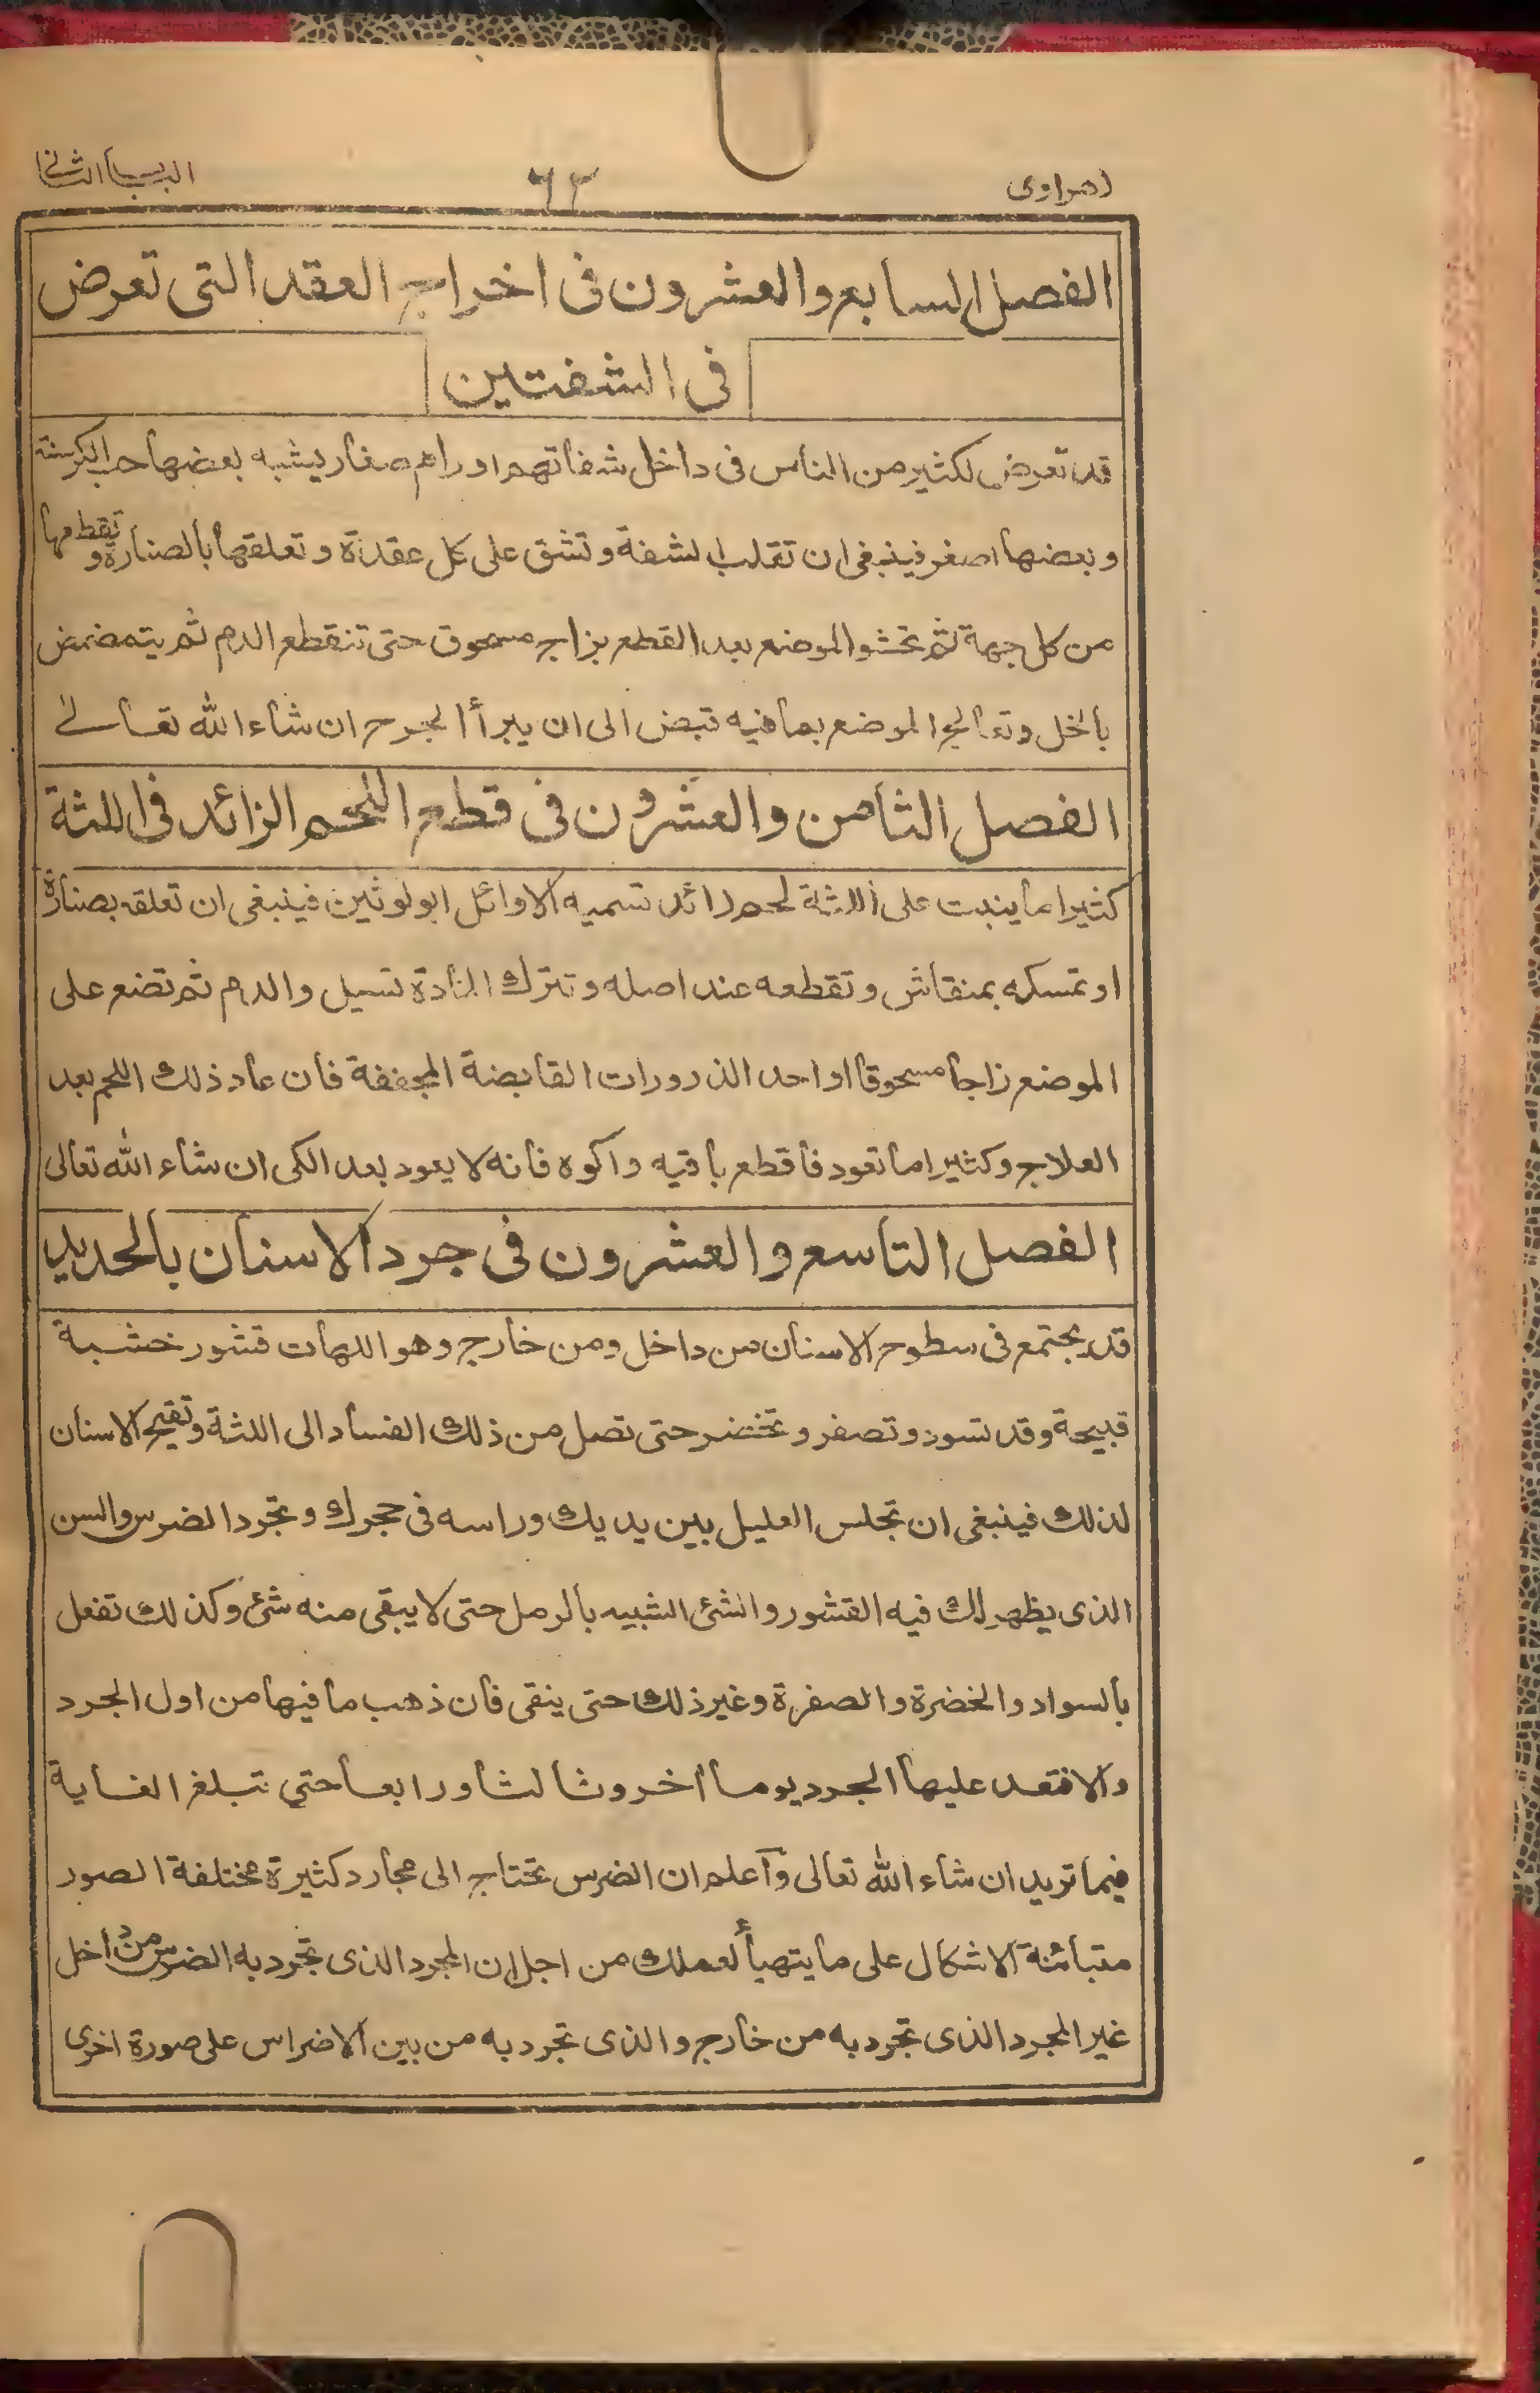 زهراوى ٦٢ الباب الثانى
الفصل السابع والعشرون فى اخراج العقد التى تعرض
فى الشفتين
قد تعرض لكثير من الناس فى داخل شفاتهم اورام صغار يشبه بعضها حب الكرسنة
وبعضها اصغر فينبغى ان تقلب الشفة وتشق على كل عقدة وتعلقها بالصنارة وتقطعها
من كل جهة ثم تحشو الموضع بعد القطع بزاج مسحوق حتى تنقطع الدم ثم يتمضمض
بالخل وتعالج الموضع بما فيه قبض الى ان يبرأ الجرح ان شاء الله تعالى
الفصل الثامن والعشرون فى قطع اللحم الزائد فى اللثة
كثيرا ما ينبت على اللثة لحم زائد تسميه الاوائل ابولوثين فينبغى ان تعلقه بصنارة
او تمسكه بمنقاش وتقطعه عند اصله وتترك المادة تسيل والدم ثم تضع على
الموضع زاجا مسحوقا او احد الذرورات القابضة المجففة فان عاد ذلك اللحم بعد
العلاج وكثيرا ما تعود فاقطع باقيه واكوه فانه لا يعود بعد الكى ان شاء الله تعالى
الفصل التاسع والعشرون فى جرد الاسنان بالحديد
قد يجتمع فى سطوح الاسنان من داخل ومن خارج وهو اللهات قشور خشبة
قبيحة وقد تسود وتصفر وتخضر حتى تصل من ذلك الفساد الى اللثة وتقيح الاسنان
لذلك فينبغى ان تجلس العليل بين يديك وراسه فى حجرك وتجرد الضرس والسن
الذى يظهر لك فيه القشور والشئ الشبيه بالرمل حتى لا يبقى منه شئ وكذلك تفعل
بالسواد والخضرة والصفرة وغير ذلك حتى ينقى فان ذهب ما فيها من اول الجرد
والا فتعد عليها الجرد يوما اخر وثالثا ورابعا حتى تبلغ الغاية
فيما تريد ان شاء الله تعالى وآعلم ان الضرس تحتاج الى مجارد كثيرة مختلفة الصور
متبائنة الاشكال على ما يتهيأ لعملك من اجل ان المجرد الذى تجرد به الضرس من داخل
غير المجرد الذى تجرد به من خارج والذى تجرد به من بين الاضراس على صورة اخرى